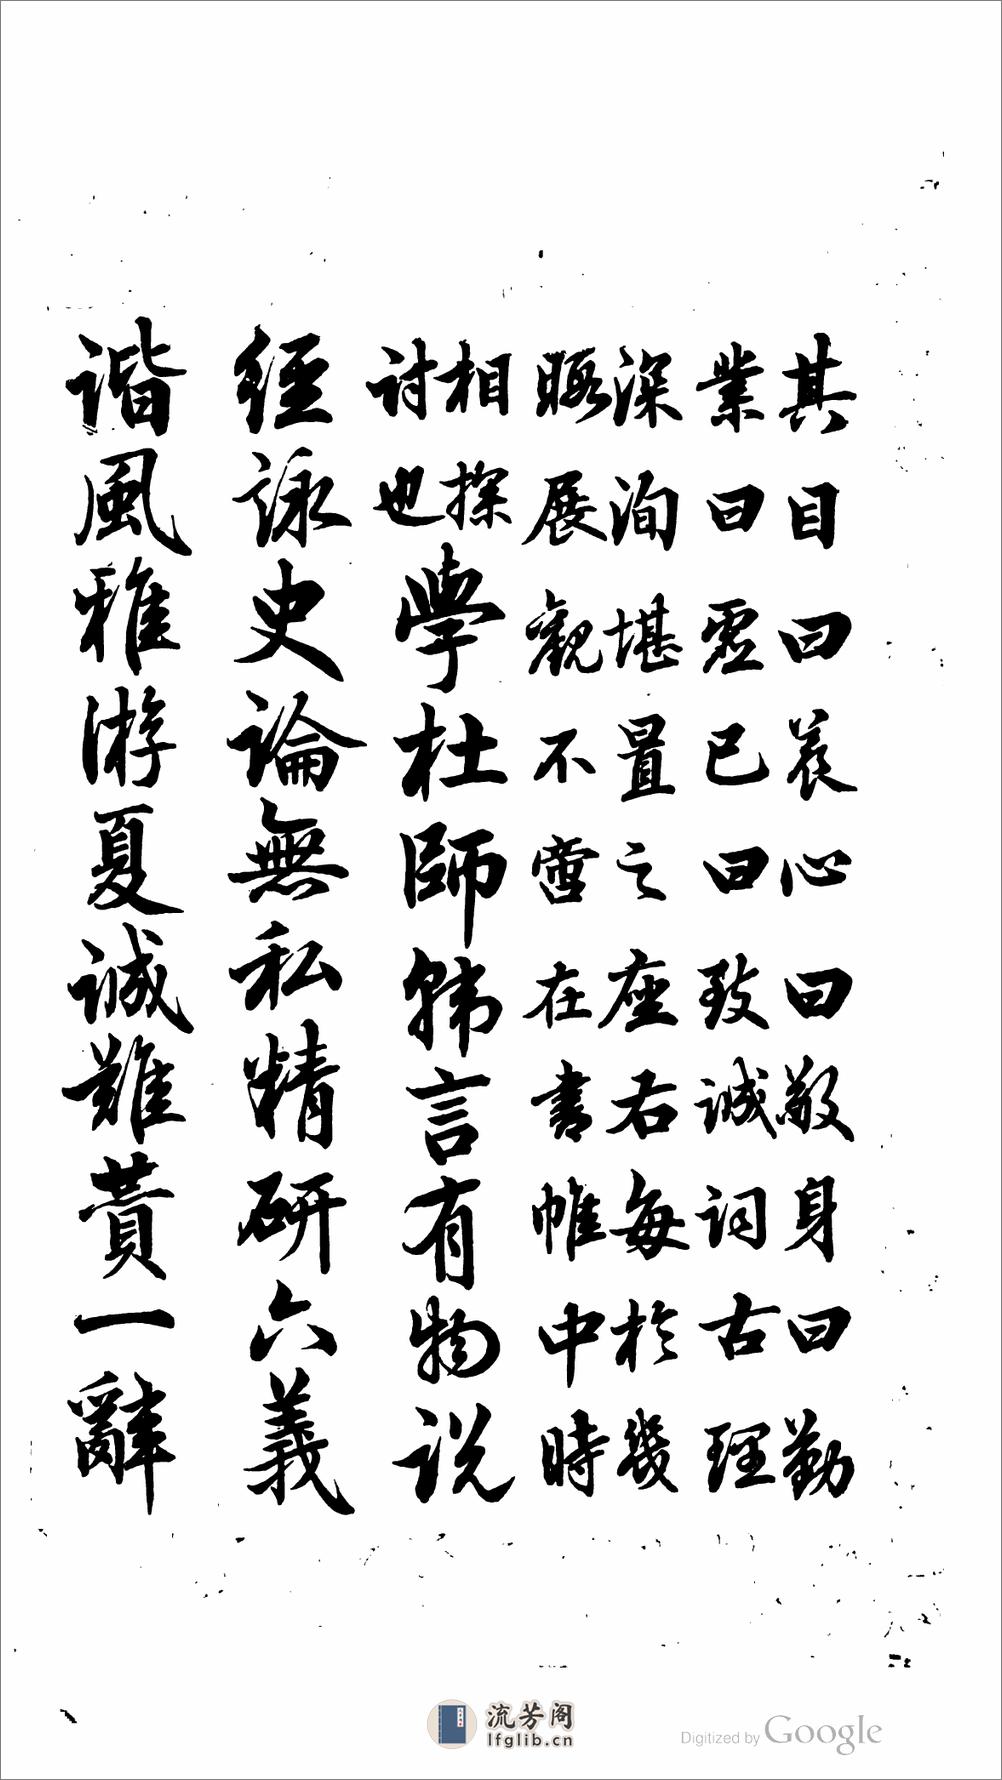 其目曰養心曰敬身曰勤
業曰虛已曰致誠詞古理
深洵堪置之座右每於幾
暇展觀不啻在書帷中時
相探
討也
學杜師韓言有物說
經詠史論無私精研六義
諧風雅游夏誠難贊一辭
流芳阁
lfglib.cn
Digitized by Google